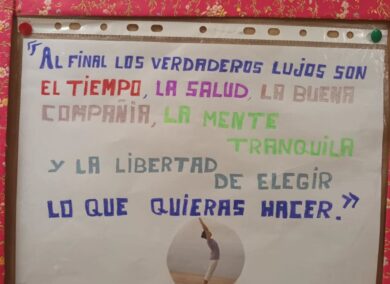 "AL FINAL LOS VERDADEROS LUJOS SON
EL TIEMPO, LA SALUD, LA BUENA
COMPAÑIA, LA MENTE
TRANQUILA
Y LA LIBERTAD
DE ELEGIR
LO QUE QUIERAS HACER."